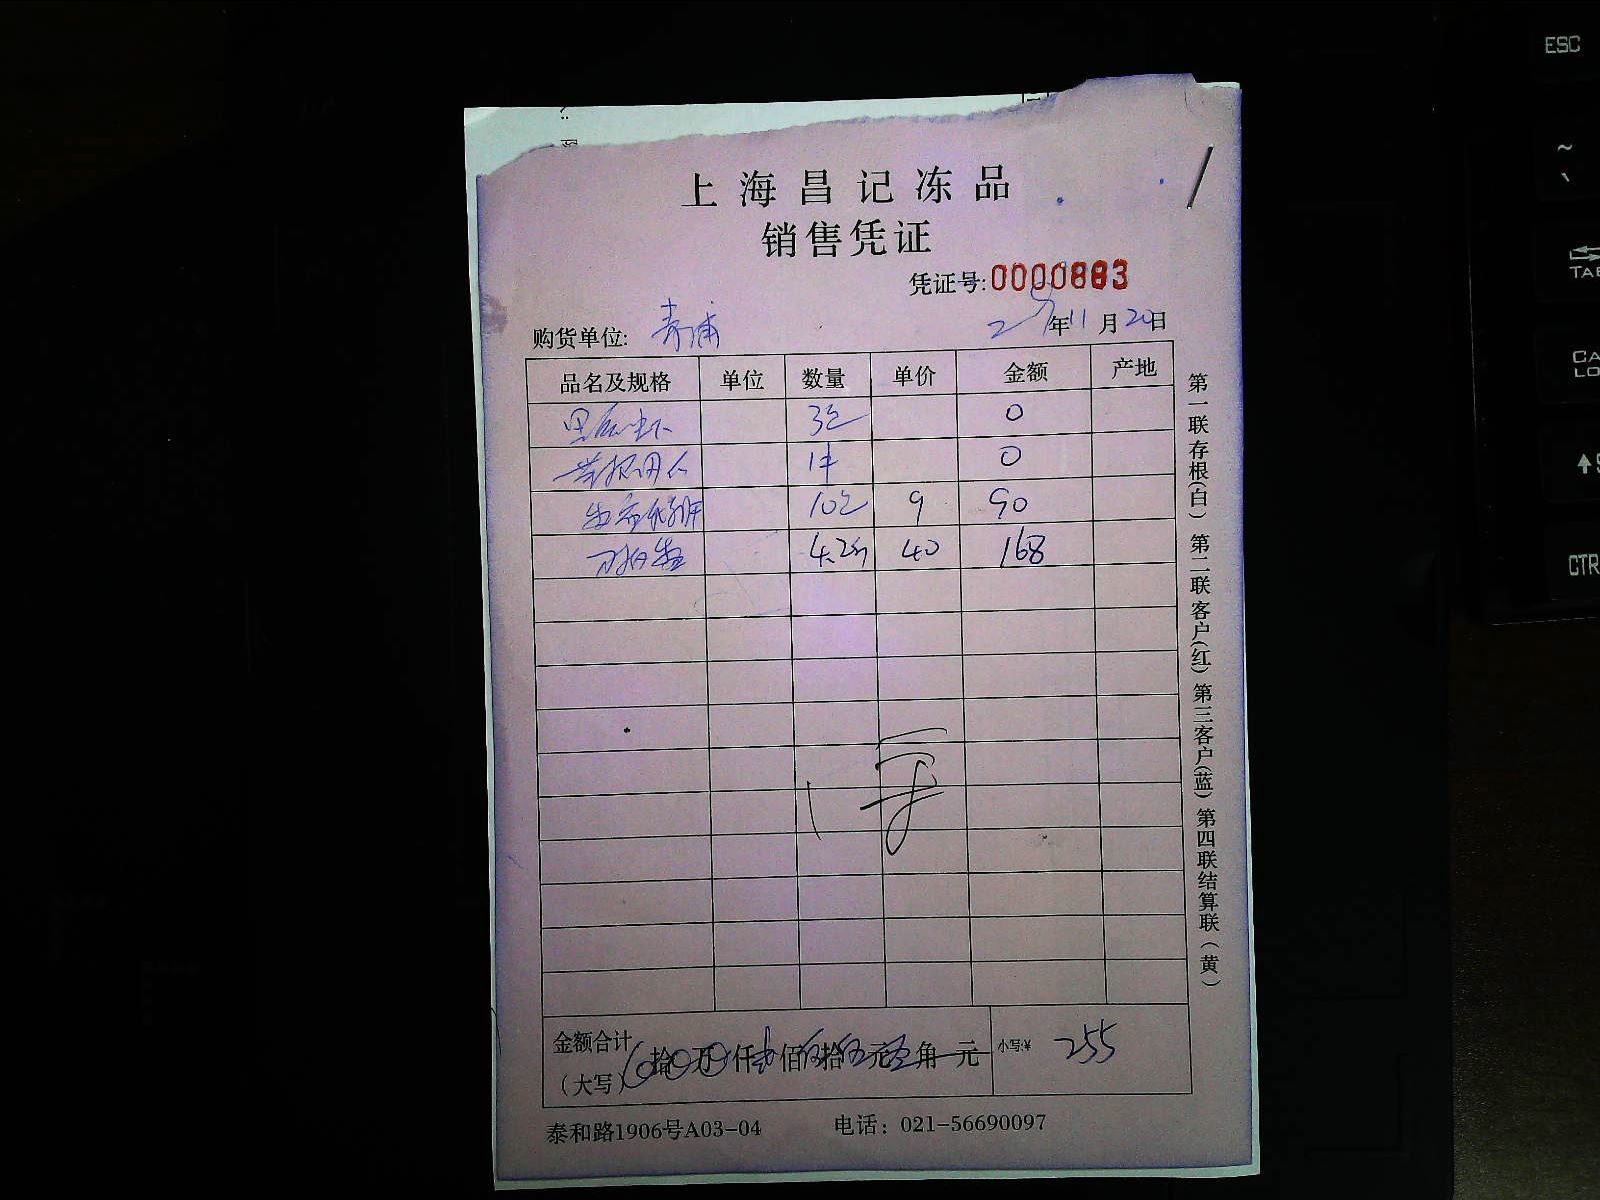 上海昌记冻品
销售凭证
凭证号:0000883
购货单位: 青浦 年11月20日
品名及规格 单位 数量 单价 金额 产地
3包 0
1件 0
10包 9 90
4.2斤 40 168
金额合计
(大写) 拾 万 仟 佰 拾 元 角 元 小写:¥ 255
泰和路1906号A03-04 电话：021-56690097
第一联存根(白) 第二联客户(红) 第三客户(蓝) 第四联结算联(黄)
ESC
~
TAB
CA
LO
CTR